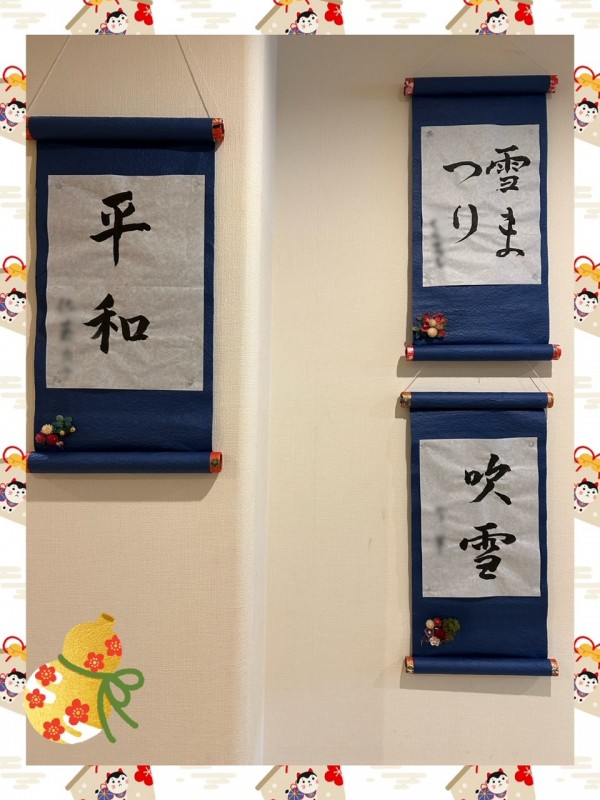 平和
雪ま
つり
吹雪